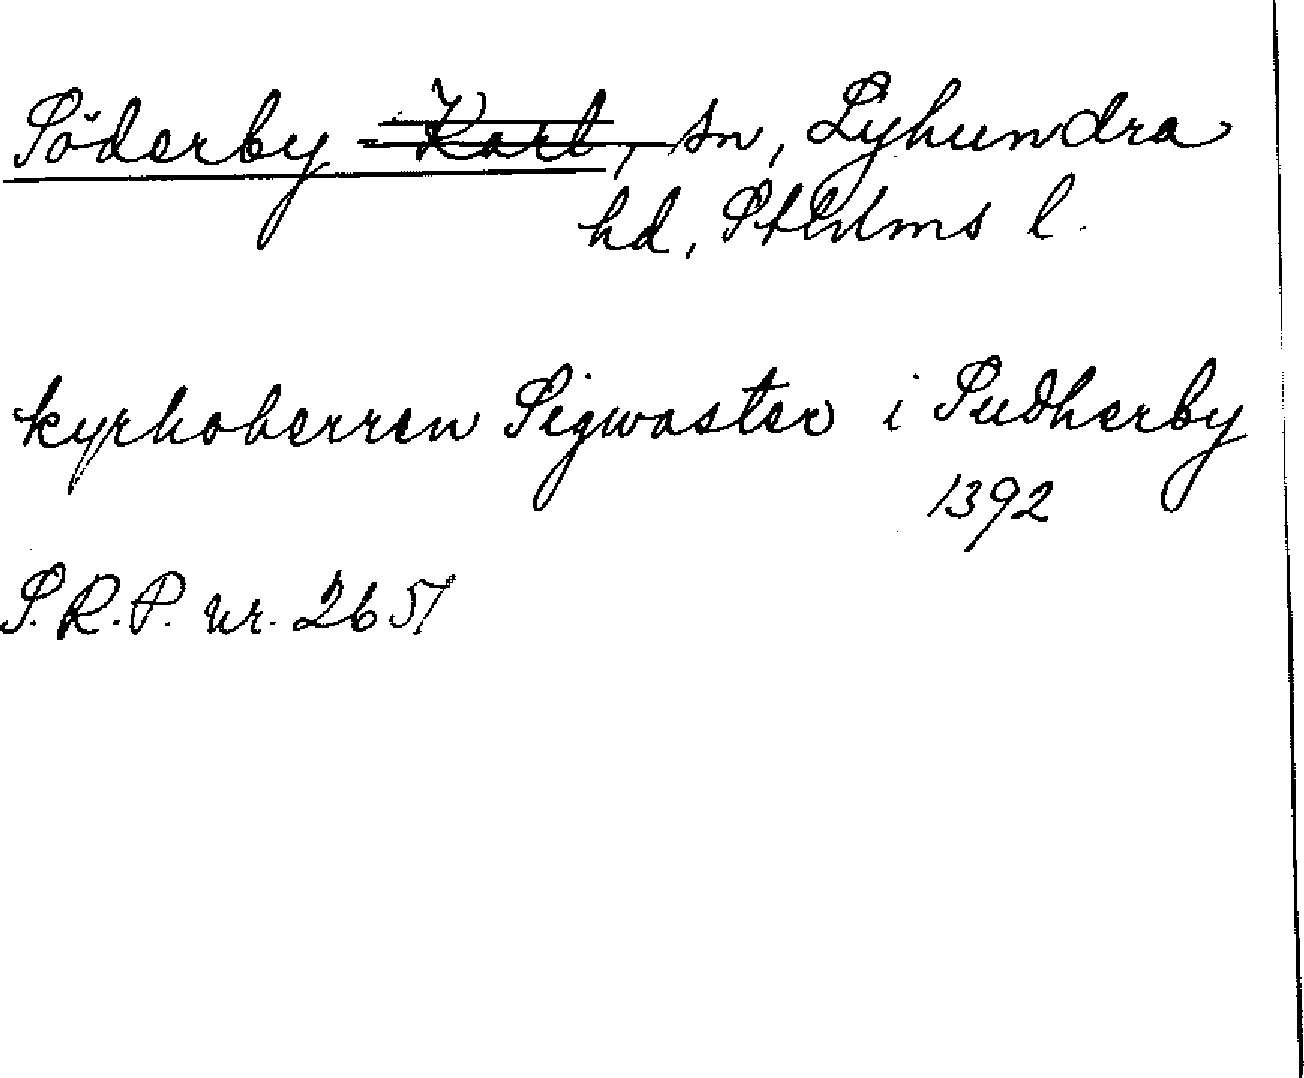 Söderby - Karl, sn, Lyhundra
hd, Sthlms l.
kyrkoherren Sigwaster i Sudherby
1392
S.R.P. nr. 2651